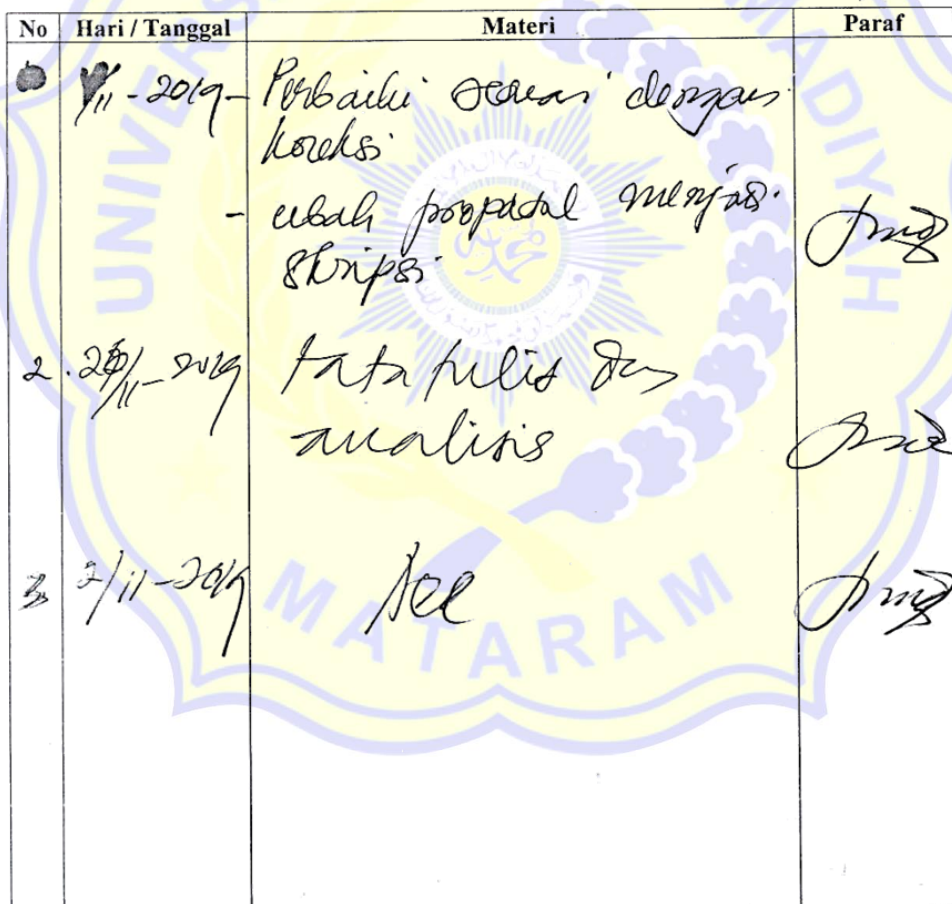 No Hari / Tanggal Materi Paraf
/11 - 2019 - Perbaiki sesuai dengan
koreksi
- ubah proposal menjadi
skripsi
2. /11 - 2019 tata tulis dan
analisis
3 2/11 - 2019 Acc
UNIVERSITAS MUHAMMADIYAH
MATARAM